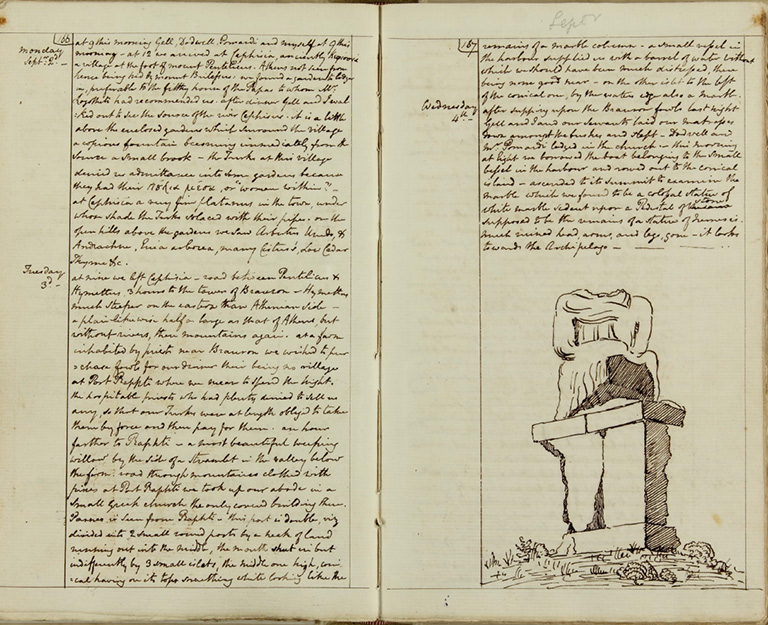 166
Monday
Septr. 2d
at 9 this morning Gell, Dodwell, Pomardi and myself at 9 this
morning - at 12 we arrived at Cephisia, anciently
a village at the foot of mount Pentelicus. Athens not seen from
hence being hid by mount Brilessus. we found a gardeners lodge
preferable to the filthy house of the Papas to whom Mr.
had recommended us. after dinner Gell and I
out to see the source of the river Cephisus. it is a little
above the enclosed gardens which surround the village
a copious fountain becoming immediately from the
source a small brook - the Turks at this village
denied us admittance into some gardens because
they had their or "women within" -
at Cephisia a very fine platanus in the town, under
whose shade the Turks solaced with their pipes. on the
open hills above the gardens we saw Arbutus Unedo, &
Andrachne, Erica arborea, many Cistus's, Low Cedar
Thyme &c.
Tuesday
3d
at nine we left Cephisia - road between Pentelicus &
Hymettus 3 hours to the tower of Brauron - Hymettus
much steeper on the eastern than Athenian side -
a plain likewise half as large as that of Athens, but
without rivers, then mountains again. at a farm
inhabited by priests near Brauron we wished to pur
=chase fowls for our dinner their being no village
at Port Raphti where we mean to spend the night.
the hospitable priests who had plenty denied to sell us
any, so that our Turks were at length obliged to take
them by force and then pay for them. an hour
farther to Raphti - a most beautiful weeping
willow by the side of a streamlet in the valley below
the farm: road through mountains clothed with
pines at Port Raphti we took up our abode in a
small Greek church the only covered building there.
is seen from Raphti - this port is double, viz
divided into 2 small round ports by a neck of land
running out into the middle, the mouth shut in but
indifferently by 3 small islets, the middle one high, coni
=cal having on its top something white looking like the
Septr
167
remains of a marble column - a small vessel in
the harbour supplied us with a barrel of water without
which we should have been much distressed, there
being none good near - on the other islet to the left
of the conical one, by the waters edge also a marble.
Wednesday
4th
after supping upon the Brauron fowls last night
Gell and I and our servants laid our matresses
down amongst the bushes and slept - Dodwell and
Mr. Pomardi lodged in the church - this morning
at eight we borrowed the boat belonging to the small
vessel in the harbour and rowed out to the conical
island - ascended to its summit to examine the
marble which we found to be a colossal statue of
white marble sedent upon a Pedestal of
supposed to be the remains of a statue of
much ruined had arms, and legs, gone - it looks
towards the Archipelago -